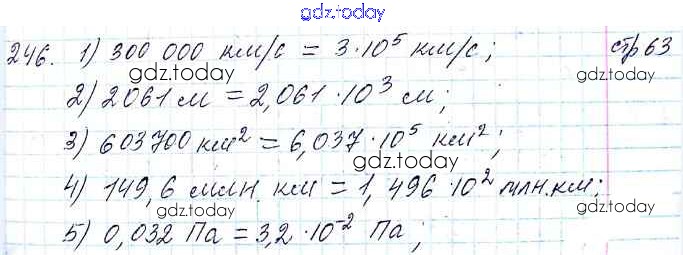 gdz.today
246. 1) 300 000 км/с = 3·10⁵ км/с; стр 63
gdz.today gdz.today
2) 2061 м = 2,061·10³ м;
gdz.today
3) 603700 км² = 6,037·10⁵ км²;
gdz.today
4) 149,6 млн. км = 1,496·10² млн.км;
gdz.today gdz.today
5) 0,032 Па = 3,2·10⁻² Па;
gdz.today